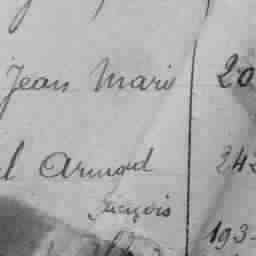 Jean Marie 20
l Armand 242
François
193-